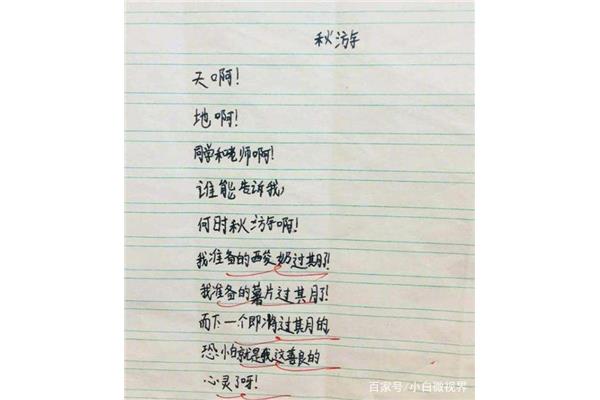 秋游
天啊!
地啊!
同学和老师啊!
谁能告诉我,
何时秋游啊!
我准备的酸奶过期了!
我准备的薯片过其月了!
而下一个即将过其月的,
恐小白就是我这善良的
心灵了呀!
百家号/小白微视界